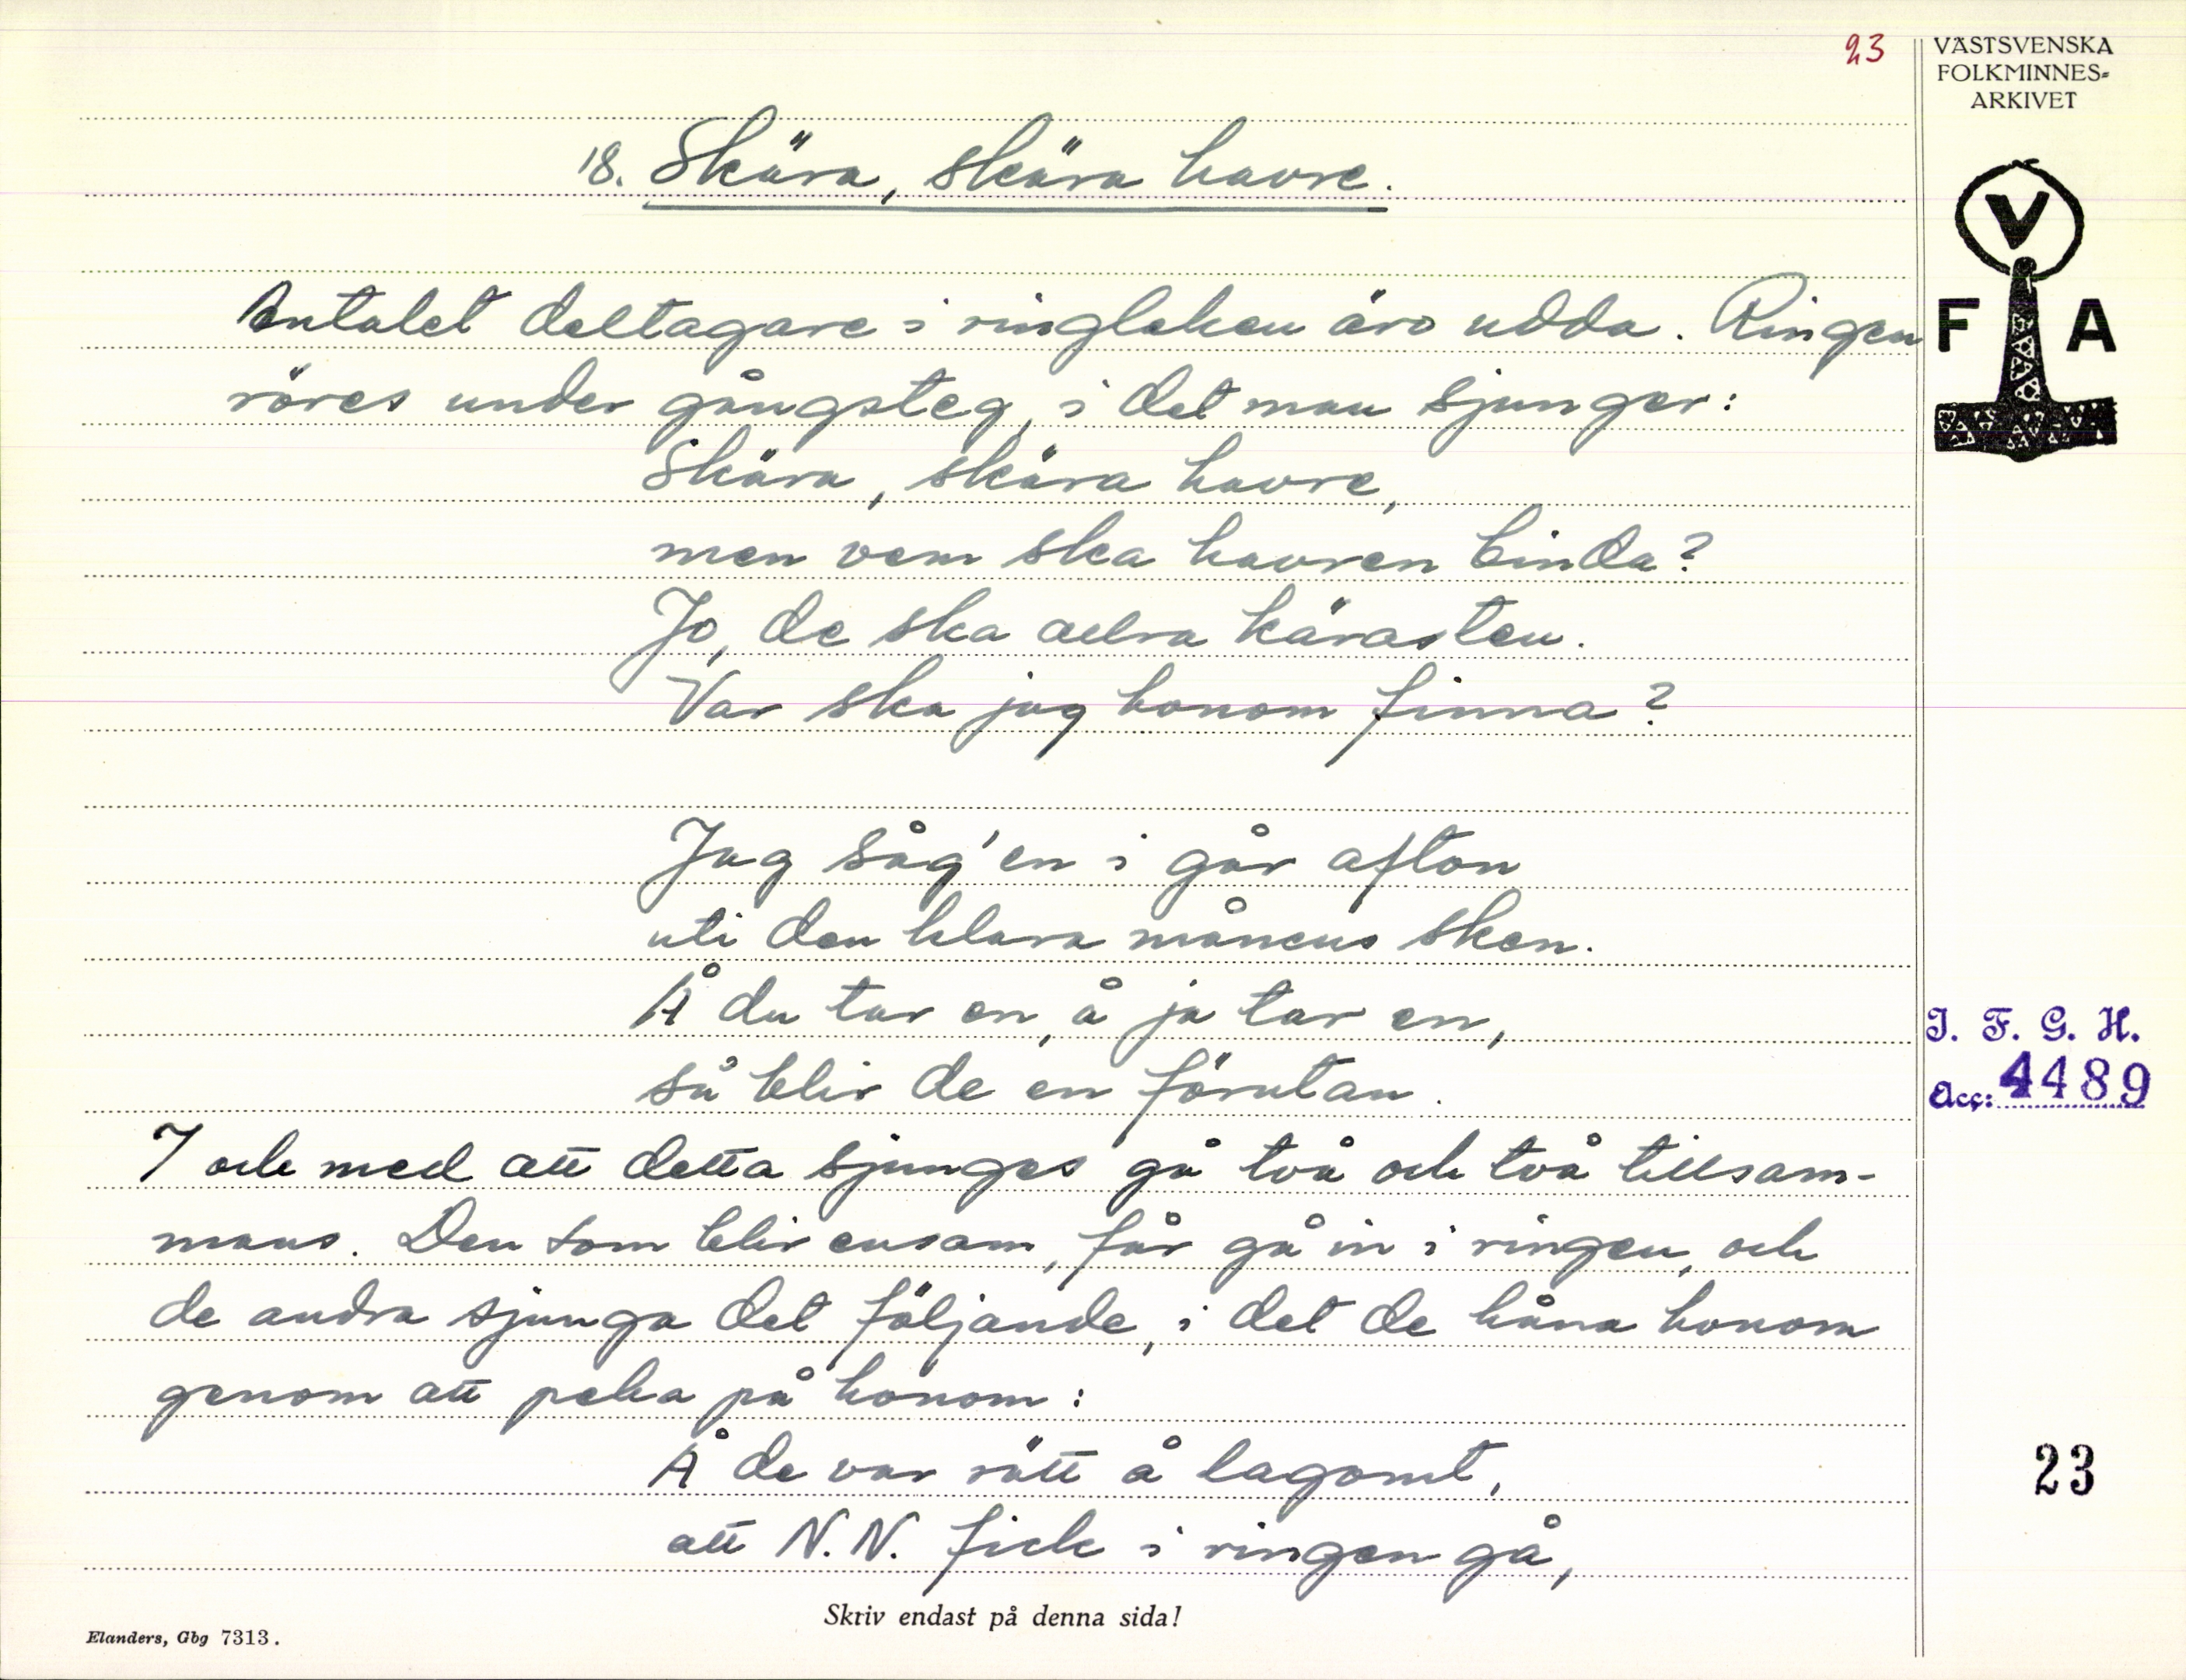 23
VÄSTSVENSKA
FOLKMINNES=
ARKIVET
V
F A
18. Skära, skära havre.
Antalet deltagare i ringleken äro udda. Ringen
röres under gångsteg, i det man sjunger:
Skära, skära havre,
men vem ska havren binda?
Jo, de ska allra kärasten.
Var ska jag honom finna?
Jag såg'en i går afton
uti den klara månens sken.
Å du tar en, å ja tar en,
så blir de en förutan.
I och med att detta sjunges gå två och två tillsam-
mans. Den som blir ensam, får gå in i ringen, och
de andra sjunga det följande, i det de håna honom
genom att peka på honom:
Å de var rätt å lagomt,
att N.N. fick i ringen gå,
I. F. G. H.
Acc: 4489
23
Skriv endast på denna sida!
Elanders, Gbg 7313.